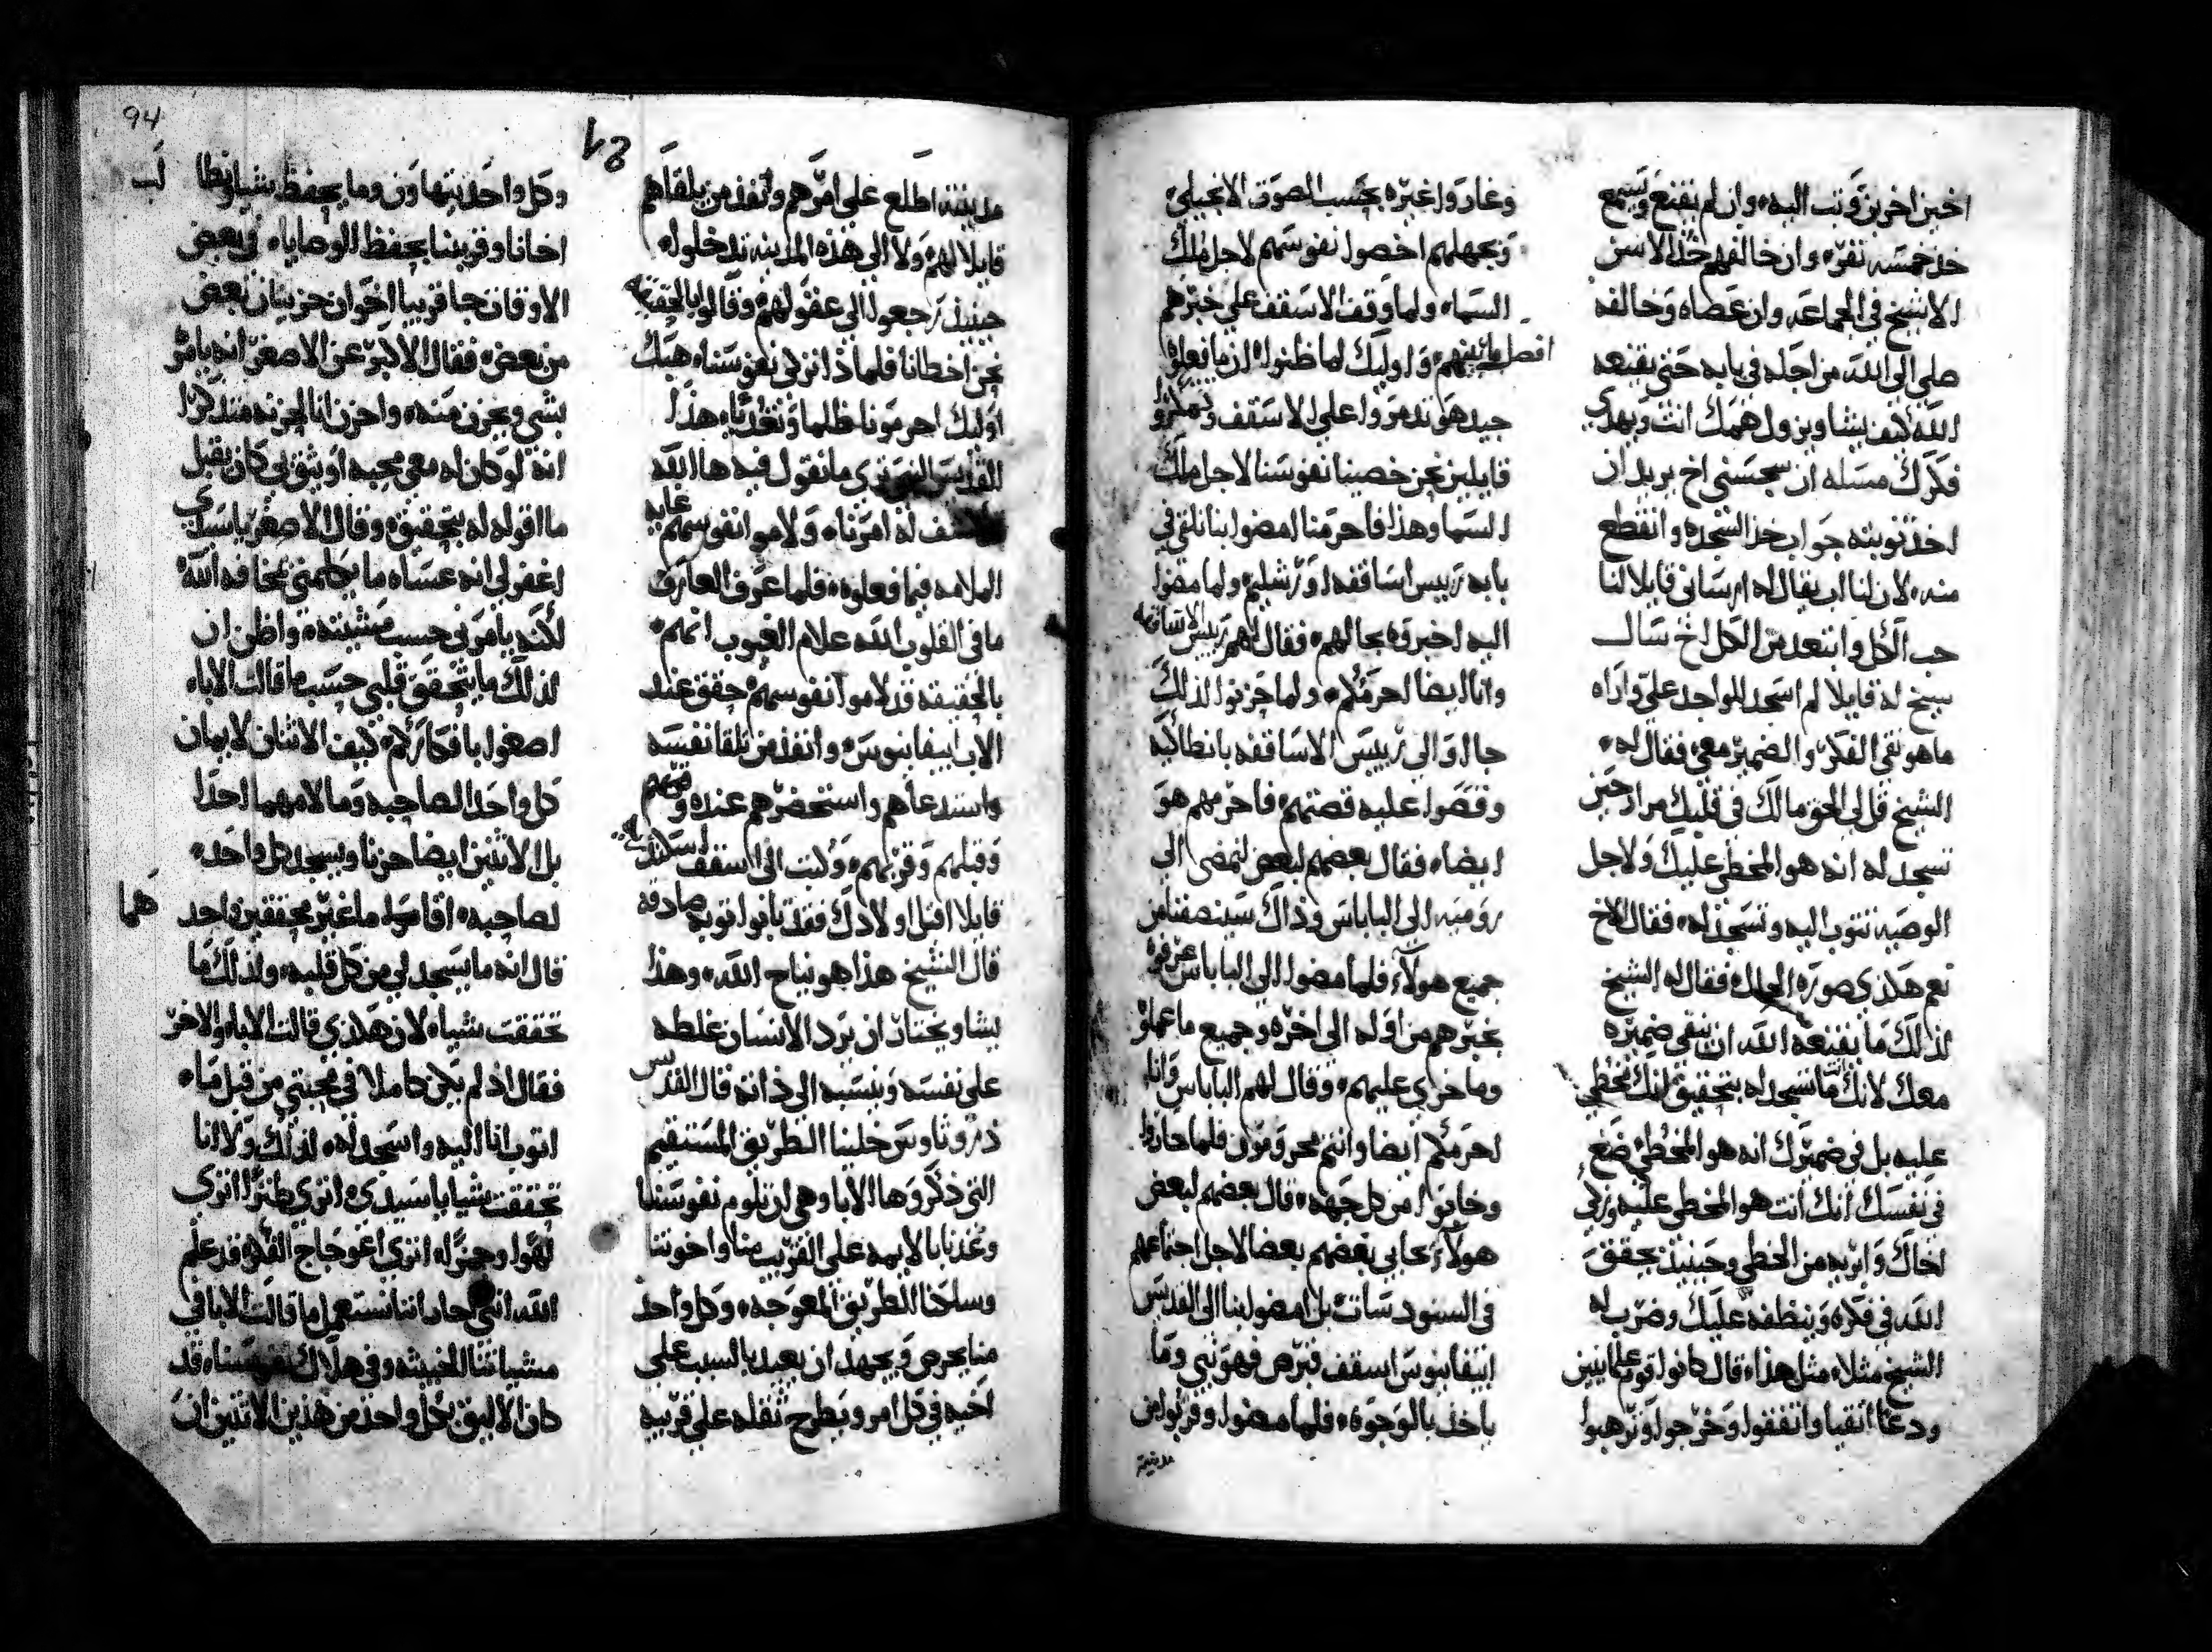 اخين اخرين وتب اليه وان لم يقنع ويسمع
خذ خمسه نفر وان خالفهم خذ الاسن
الاشيخ في الجماعه وان عصاه وخالفه
صلي الي الله من اجله في بابه حتي يقنعه
الله كيف يشا ويزول همك انت ويهدي
فكرك مسله ان سجسني اخ يريد ان
اخذ توبته جواب خذ السجده وانقطع
منه لان لنا اب يقال له ارسانى قايلا لنا
حب الكل وابتعد من الكل اخ سال
شيخ له قايلا لم اسجد للواجد علي واراه
ما هو نقي الفكر والضمير معي فقال له
الشيخ قل لي الحق مالك في قلبك مرار حين
تسجد له انه هو المخطي عليك ولاجل
الوصيه تتوب اليه وتسجد له فقال الاخ
نعم هكذي صورة الحال فقال له الشيخ
لذلك ما يقنعه الله ان ينقي ضميره
معك لانك ما تسجد له بتحقيق انك مخطي
عليه بل في ضميرك انه هو المخطي ضع
في نفسك انك انت هو المخطي عليه وزكي
اخاك وابريه من الخطي وحينيذ يحقق
الله في فكره وينظفه عليك وضرب له
الشيخ مثلا مثل هذا قال كانوا قوم علمانيين
ودعا اتقيا واتفقوا وخرجوا وترهبوا
وغاروا غيره بحسب الصوت الانجيلي
وبجهلهم اخصوا نفوسهم لاجل ملك
السما ولما وقف الاسقف علي خبرهم
افصل ما بينهم واوليك لما ظنوا ان ما فعلوه
جيد هو تدمروا علي الاسقف
قايلين نحن خصينا نفوسنا لاجل ملك
السما وهذا فاحرمنا امضوا بنا نلتقي في
بابه رييس اساقفه اورشليم ولما مضوا
اليه اخبروه بحالهم فقال لهم رييس الاساقفه
وانا ايضا احرمكم ولما حزنوا لذلك
جاوا الي رييس الاساقفه بانطاكيه
وقصوا عليه قصتهم فاحرمهم هو
ايضا فقال بعضهم لبعض لنمضي الي
روميه الي الباباس وذاك سينصفنا من
جميع هولاء فلما مضوا الي الباباس عرفوه
بخبرهم من اوله الي اخره وجميع ما عملوه
وما جري عليهم وقال لهم الباباس وانا
احرمكم ايضا وانتم محرومون فلما حاروا
وخابوا من كل جهه قال بعضهم لبعض
هولاء يحابي بعضهم بعضا لاجل اجتماعهم
في السنودسات بل امضوا بنا الي القديس
ابيفانيوس اسقف قبرص فهو نبي وما
ياخذ بالوجوه فلما مضوا وقربوا من
مدينته
94
مدينته اطلع علي امرهم وانفذ من يلقاهم
قايلا لهم ولا الي هذه المدينه تدخلوا
حينيذ رجعوا الي عقولهم وقالوا بالحقيقه
نحن اخطانا فلماذا نزكي نفوسنا هبك
اوليك احرمونا ظلما وتعديا هذا
القديس النبي تري ما نقول فيه ها الله
كشف له امرنا ولاموا نفوسهم غايه
الملامه فيما فعلوه فلما عرف العارف
ما في القلوب الله علام الغيوب انهم
بالحقيقه قد لاموا نفوسهم حقق عند
الاب ابيفانيوس وانفذ من تلقا نفسه
واستدعاهم واستحضرهم عنده
وقبلهم وقربهم وكتب الي اسقف اسكندريه
قايلا اقبل اولادك فقد تابوا توبه صادقه
قال الشيخ هذا هو نياح الله وهذا
يشا ويختار ان يرد الانسان غلطه
علي نفسه وينسبه الي ذاته قال القديس
ذوروثاوس خلينا الطريق المستقيم
التي ذكروها الابا وهي ان نلوم نفوسنا
وعدنا بالايمه علي القريب منا واخوتنا
وسلكنا الطريق المعوجه وكل واحد
منا يحرص ويجهد ان يعيد بالسبب علي
اخيه في كل امر ويطرح ثقله علي قريبه
وكل واحد يتهاون وما يحفظ شيا ويطالب
اخانا وقريبنا بحفظ الوصايا في بعض
الاوقات جا قريبا اخوان حزينان بعض
من بعض فقال الاكبر عن الاصغر انه يامر
بشي ويحزن منه واحزن انا لحزنه متذكرا
انه لو كان له معي محبه او يثق بي كان يقبل
ما اقوله له بتحقيق وقال الاصغر يا سيدي
اغفر لي انه عساه ما يكلمني بمخافه الله
لكنه يامرني حسب مشيته واظن ان
لذلك ما يتحقق قلبي حسب ما قالت الابا
اصغوا بافكاركم كيف الاثنان لايمان
كل واحد لصاحبه وما لام هما احدا
بل الاثنين ايضا حزنا ويسجد كل واحد
لصاحبه اقاموا هما غير محققين واحد
قال انه ما يسجد لي من كل قلبه ولذلك ما
تحققت شيا لان هكذي قالت الابا والاخر
فقال اذ لم يكن كاملا في محبتي من قبل ما
اتوب انا اليه واسجد له لذلك ولا انا
تحققت شيا يا سيدي اتري طنزا اتري
لهوا وهزا اتري اعوجاج الفكر قد علم
الله انني حار اننا نستعمل ما قالت الابا في
مشياتنا الخبيثه وفي هلاك نفوسنا قد
كان الاليق بكل واحد من هذين الاثنين ان